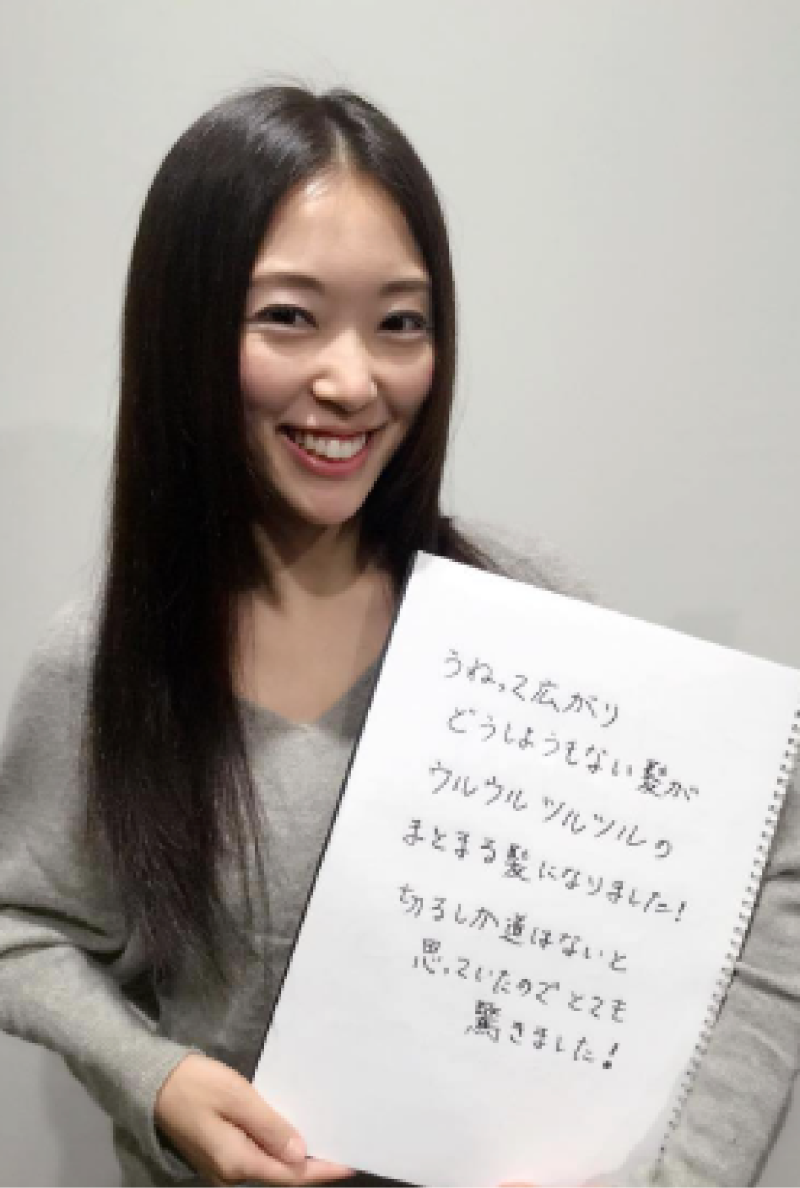 うねって広がり
どうしようもない髪が
ウルウルツルツルの
まとまる髪になりました!
切るしか道はないと
思っていたのでとても
驚きました!